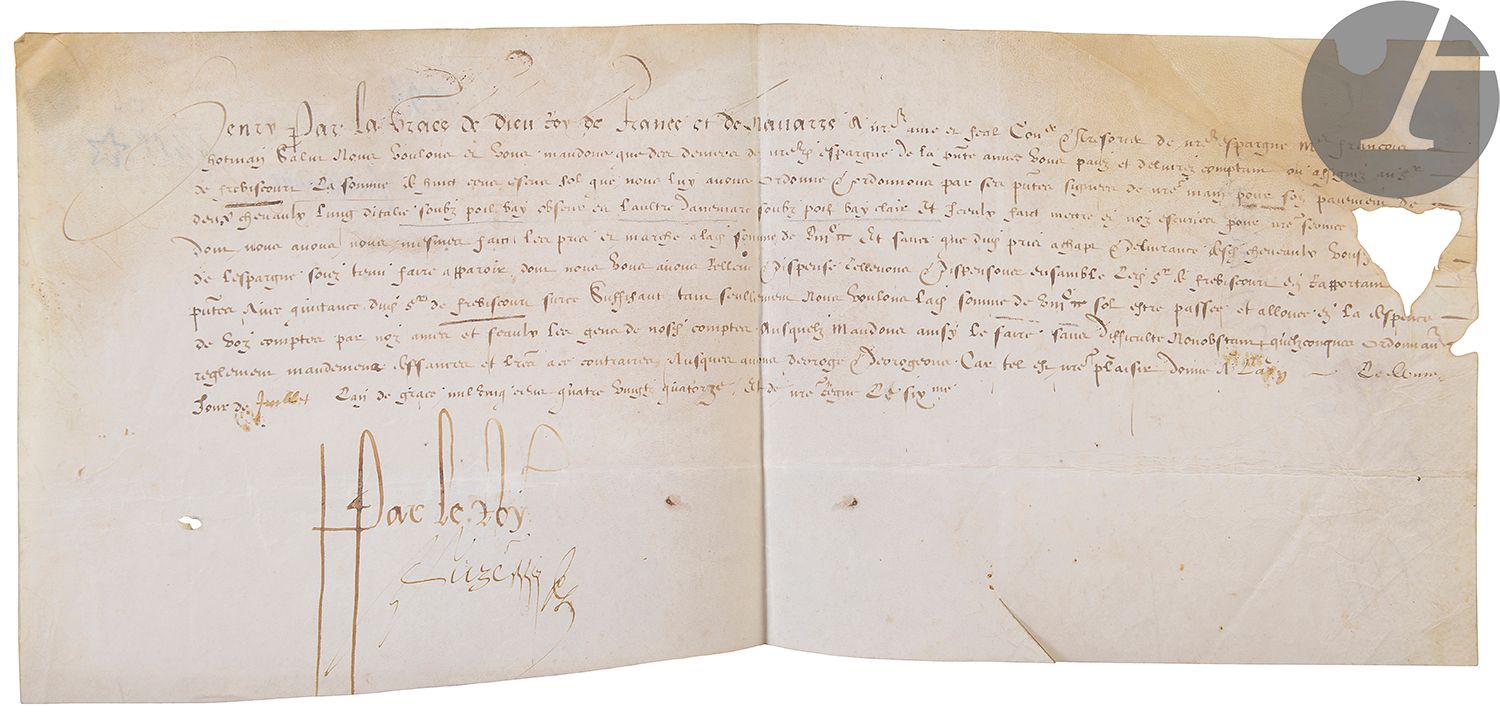 Henry Par la Grace de Dieu Roy de France et de Navarre A nre ame et feal Coner & Tresorier de nre espargne Me Francois
hotman Salut Nous voulons et vous mandons que des deniers de nred espargne de la pnte annee vous paiez et delivrez comptant ou assignez au Sr
de frebiscourt La somme de huict cens escus sol que nous luy avons ordonne & ordonnons par ces pntes signees de nre main pour son paiement de
deux chevaulx lung d'italie soubz poil bay obscur et laultre Danemarc soubz poil bay clair Et Iceulx faict mettre en noz escuries pour nre service
Dont nous avons nous mesmes faict les pris et marche a lad somme de Et sans que dud pris achapt & delivrance desd chevaulx vous
de lespargne soiez tenu faire apparoir dont nous vous avons relleve & dispense rellevons & dispensons ensemble led Sr de frebiscourt En Rapportant
pntes Avec quictance dud Sr de frebiscourt sur ce suffisant tant seullement Nous voulons lad somme de sol estre passee et allouee en la despence
de voz comptes par noz amez et feaulx les gens de nosd comptes Ausquelz Mandons ainsy le faire sans difficulte Nonobstant quelzconques ordonnan
reglement mandemens deffances et lres a ce contraires Ausquelles avons deroge & derogeons Car tel est nre plaisir Donne A Le
Jour de Juillet Lan de grace mil cinq cens quatre vingtz quatorze Et de nre Regne Le sixme
Par le Roy
Ruzé